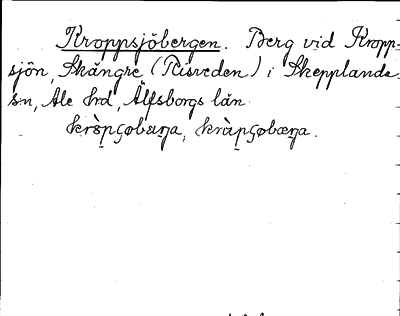 Kroppsjöbergen. Berg vid Kropp-
sjön, Skångre (Risveden) i Skepplanda
sn, Ale hrd, Älfsborgs län
krɔ̀pçøbæŋa, kràpçøbæŋa.